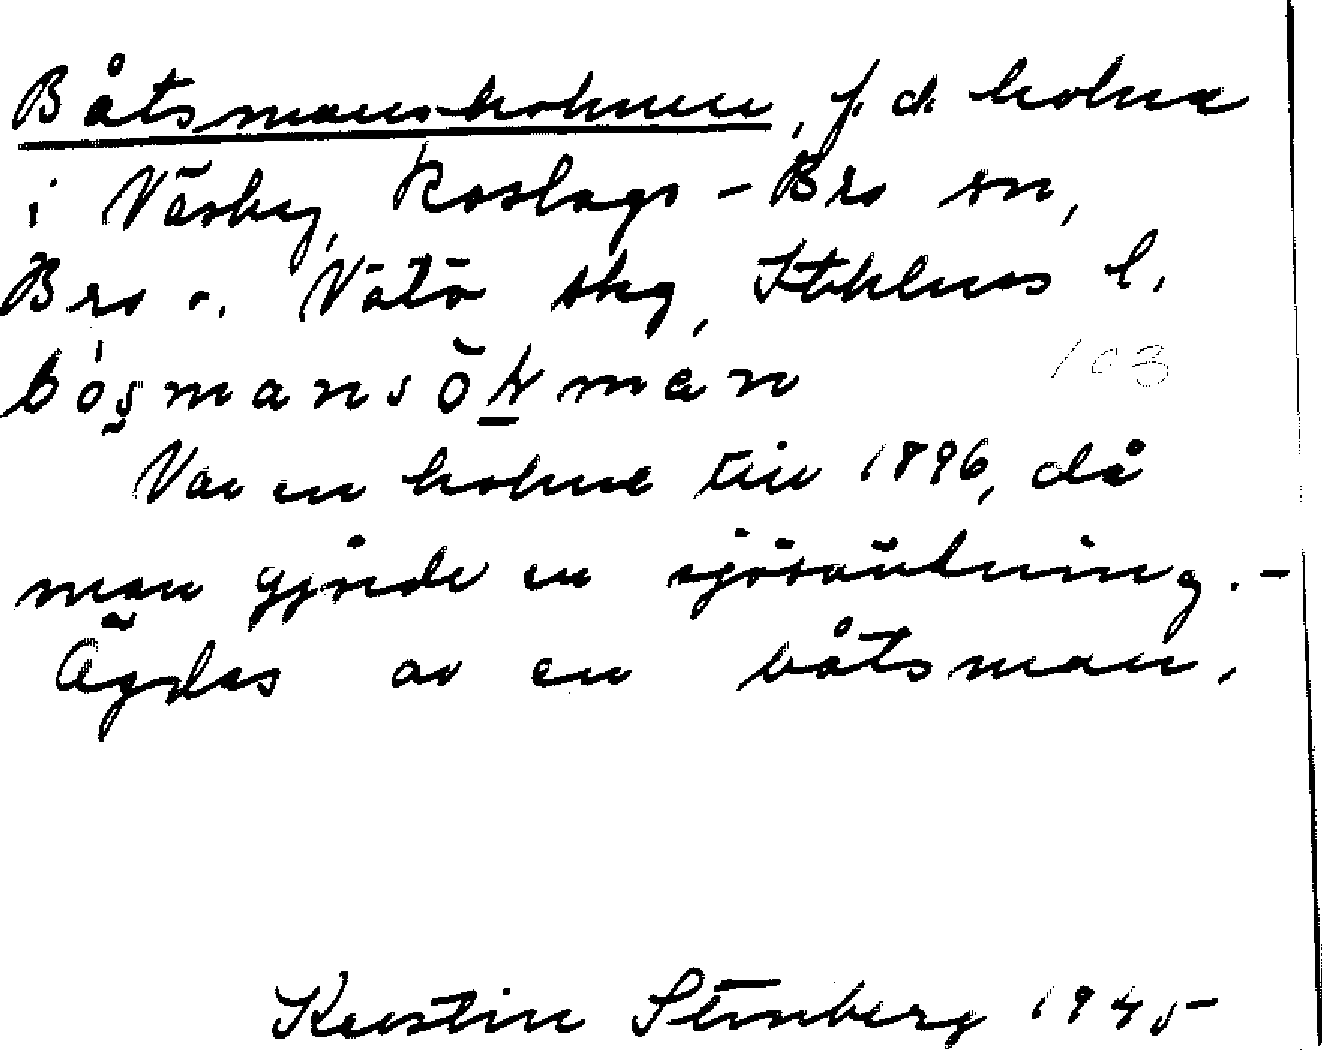 Båtsmansholmen, f. d. holme
i Väsby, Roslags-Bro sn,
Bro o. Vätö skg, Sthlms l.
bósmansöḻman 103
Var en holme till 1896, då
man gjorde en sjösänkning. -
Ägdes av en båtsman.
Kerstin Stenberg 1945